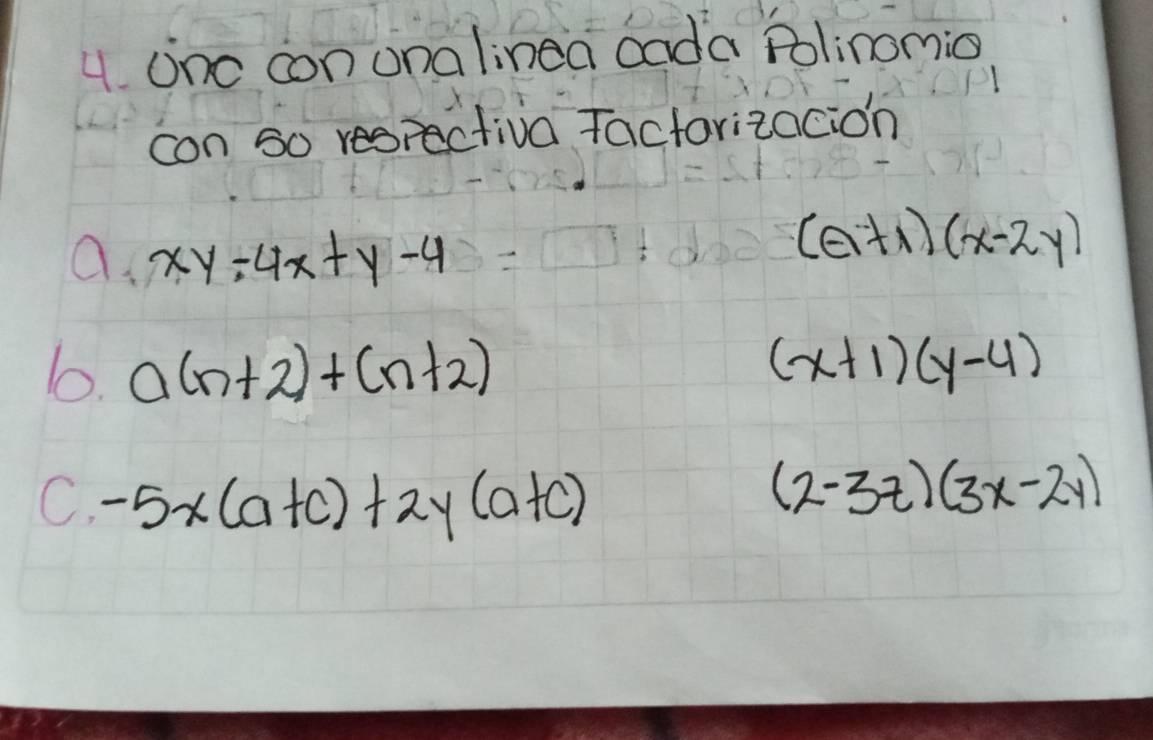 4. Une con una linea cada Polinomio
con su respectiva Factorización
a. xy-4x+y-4 (a+1)(x-2y)
b. a(n+2)+(n+2) (x+1)(y-4)
c. -5x(a+c)+2y(a+c) (2-3z)(3x-2y)